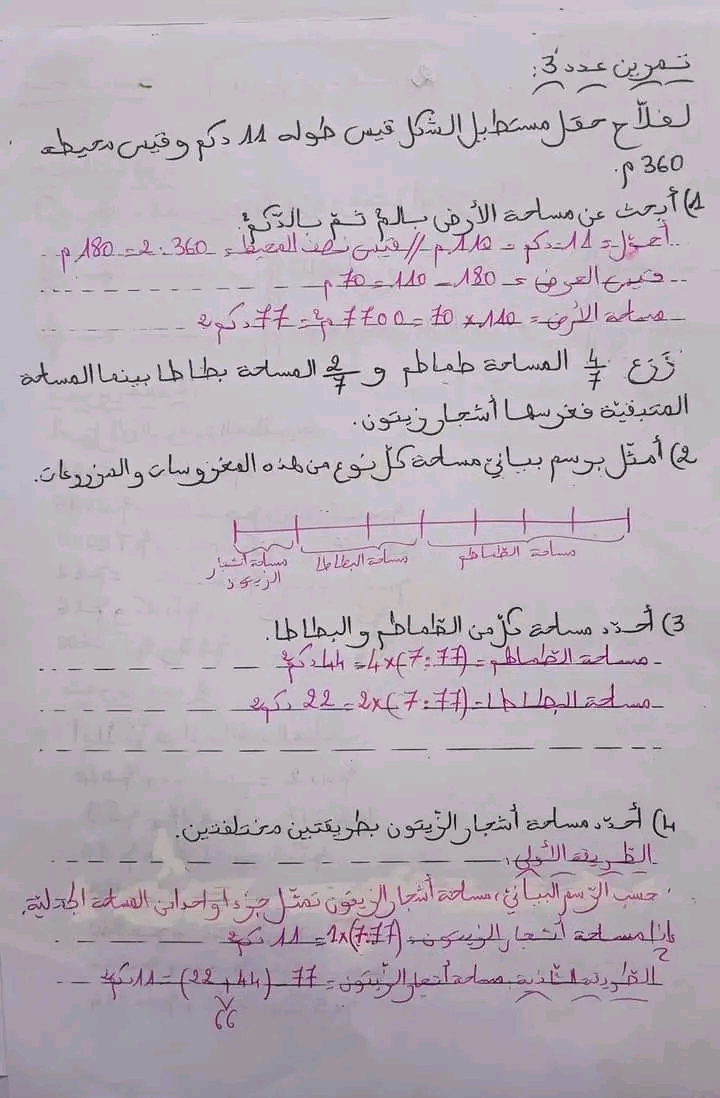 تمرين عدد 3:
لفلاّح حقل مستطيل الشكل قيس طوله 11 دكم وقيس محيطه
360 م.
1) أبحث عن مساحة الأرض بالم² ثم بالدّكم².
أحوّل = 11 دكم = 110 م // قيس نصف المحيط = 360 : 2 = 180 م
قيس العرض = 180 - 110 = 70 م
مساحة الأرض = 110 × 70 = 7700 م² = 77 دكم²
زرع 4/7 المساحة طماطم و 2/7 المساحة بطاطا بينما المساحة
المتبقية فغرسها أشجار زيتون.
2) أمثّل برسم بياني مساحة كلّ نوع من هذه المغروسات والمزروعات.
مساحة الطماطم مساحة البطاطا مساحة أشجار
الزيتون
3) أحدّد مساحة كلّ من الطّماطم والبطاطا.
مساحة الطماطم = (77 : 7) × 4 = 44 دكم²
مساحة البطاطا = (77 : 7) × 2 = 22 دكم²
4) أحدّد مساحة أشجار الزّيتون بطريقتين مختلفتين.
الطريقة الأولى:
حسب الرّسم البياني، مساحة أشجار الزيتون تمثّل جزءا واحدا من المساحة الجملية.
إذا مساحة أشجار الزيتون = (77 : 7) × 1 = 11 دكم²
الطريقة الثانية مساحة أشجار الزّيتون = 77 - (44 + 22) = 11 دكم²
66